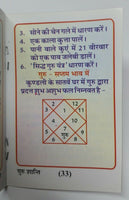 3. सोने की चेन गले में धारण करें।
4. एक काला कुत्ता पालें।
5. पानी वाले कुएं में 21 वीरवार
को एक पाव जलेबी डालें।
6. "सिद्ध गुरु यंत्र" धारण करें।
गुरु - सप्तम भाव में
कुण्डली के सातवें घर में गुरु द्वारा
प्रदत्त शुभ अशुभ फल निम्नवत है -
2
12
3
1
11
4
10
5
7
9
6
8
गुरु शान्ति
(33)